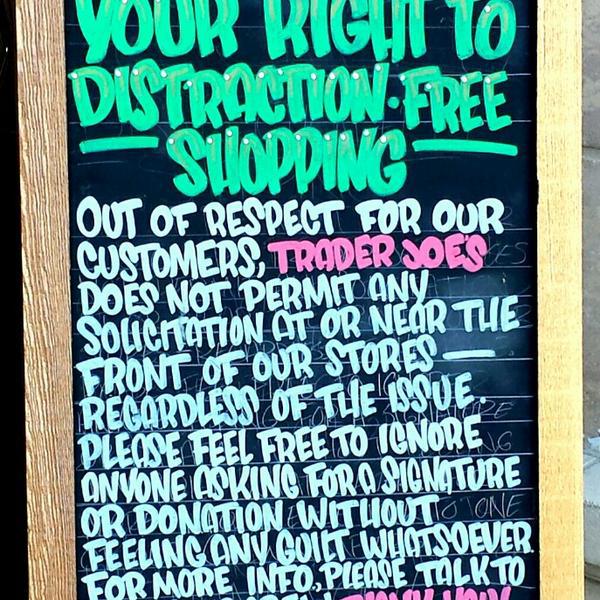 YOUR RIGHT TO
DISTRACTION-FREE
SHOPPING
OUT OF RESPECT FOR OUR
CUSTOMERS, TRADER JOE'S
DOES NOT PERMIT ANY
SOLICITATION AT OR NEAR THE
FRONT OF OUR STORES —
REGARDLESS OF THE ISSUE.
PLEASE FEEL FREE TO IGNORE
ANYONE ASKING FOR A SIGNATURE
OR DONATION WITHOUT
FEELING ANY GUILT WHATSOEVER.
FOR MORE INFO, PLEASE TALK TO